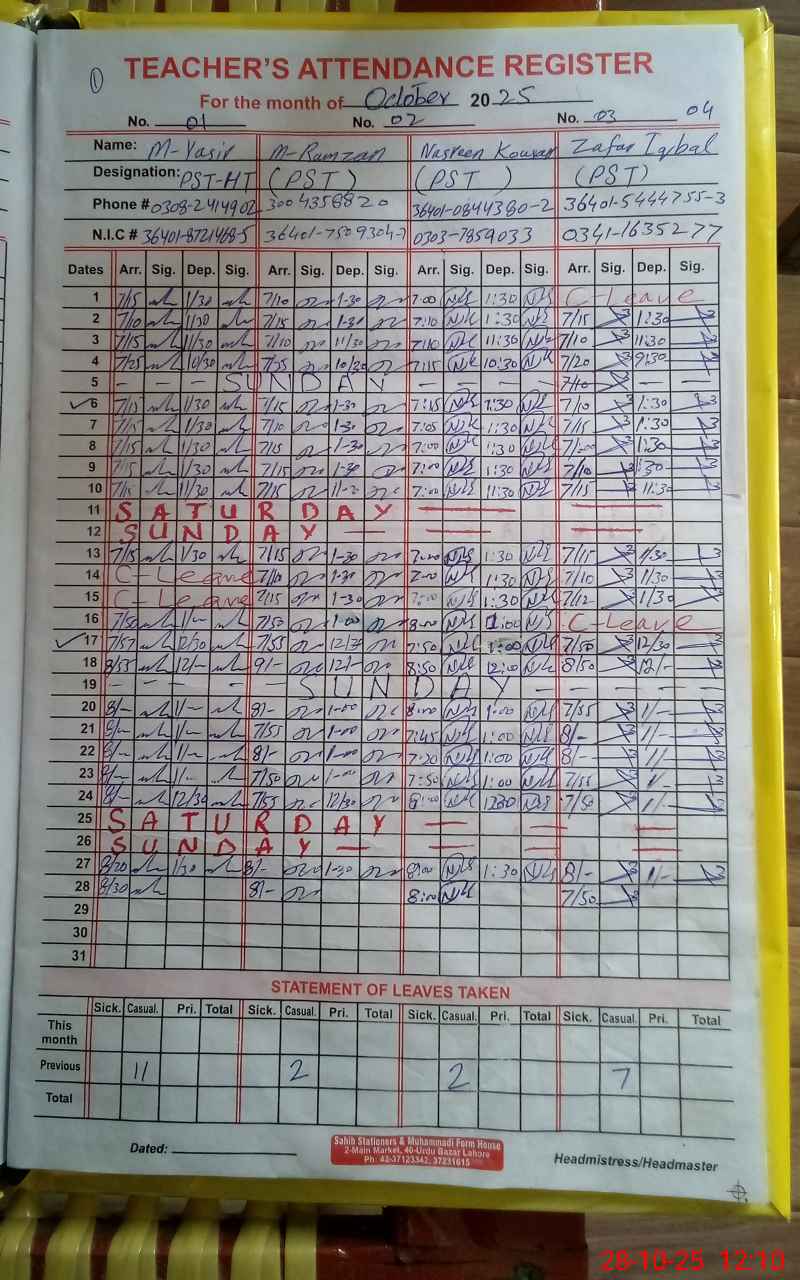 1
TEACHER'S ATTENDANCE REGISTER
For the month of October 2025
No. 01 No. 02 No. 03 04
Name: M-Yasir M-Ramzan Nasreen Kousar Zafar Iqbal
Designation: PST-HT (PST) (PST) (PST)
Phone # 0308-2414902 3004358820 36401-0844380-2 36401-5444755-3
N.I.C # 36401-8721468-5 36401-7509304-7 0303-7859033 0341-1635277
Dates Arr. Sig. Dep. Sig. Arr. Sig. Dep. Sig. Arr. Sig. Dep. Sig. Arr. Sig. Dep. Sig.
1 7/15 1/30 7/10 1-30 7:00 1:30 C-Leave
2 7/10 1/30 7/15 1-30 7:10 1:30 7/15 1:30
3 7/15 11/30 7/10 11/30 7:10 11:30 7/10 11:30
4 7/25 10/30 7/25 10/30 7:15 10:30 7/20 9:30
5 - - - SUNDAY - - - - 7/10 - -
6 7/15 1/30 7/15 1-30 7:15 1:30 7/10 1:30
7 7/15 1/30 7/10 1-30 7:05 1:30 7/15 1:30
8 7/15 1/30 7/15 1-30 7:00 1:30 1:30
9 7/15 1/30 7/15 1-30 7:00 1:30 7/10 1:30
10 7/15 11/30 7/15 7:00 11:30 7/15 11:30
11 SATURDAY
12 SUNDAY —
13 7/15 1/30 7/15 1-30 7:00 1:30 7/15 1/30
14 C-Leave 7/10 1-30 7:00 1:30 7/10 1/30
15 C-Leave 7/15 1-30 7:00 1:30 7/12 1/30
16 7/50 1/- 7/53 1-00 8:00 1:00 C-Leave
17 7/57 12/30 7/55 12/30 7:50 1:00 7/50 12/30
18 8/53 12/- 9/- 12/- 8:50 12:00 8/50 12/-
19 - - - - - SUNDAY - - - - -
20 8/- 1/- 8/- 1-00 8:00 1:00 7/55 1/-
21 8/- 1/- 7/55 1-00 7:45 1:00 8/- 1/-
22 8/- 1/- 8/- 1-00 1:00 8/- 1/-
23 8/- 1/- 7/50 1-00 7:50 1:00 7/55 1/-
24 8/- 12/30 7/55 12/30 8:00 12:30 7/50 1/-
25 SATURDAY — — —
26 SUNDAY — — — —
27 8/20 1/30 8/- 1-30 8:00 1:30 8/- 1/-
28 8/30 8/- 8:00 7/50
29
30
31
STATEMENT OF LEAVES TAKEN
Sick. Casual. Pri. Total Sick. Casual. Pri. Total Sick. Casual. Pri. Total Sick. Casual. Pri. Total
This month
Previous 11 2 2 7
Total
Dated:
Sahib Stationers & Muhammadi Form House
2-Main Market, 40-Urdu Bazar Lahore
Ph: 42-37123342, 37231615
Headmistress/Headmaster
28-10-25 12:10